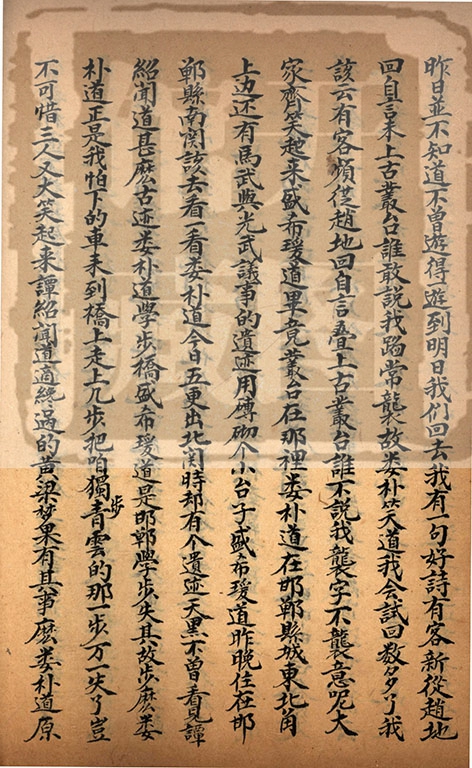 昨日並不知道不曾遊得一遊到明日我們回去我有一句好詩有客新從趙地
回自言未上古叢台誰敢說我蹈常襲故娄朴笑道我会試回数多了我
該云有客頻従趙地回自言疊上古叢台誰不說我襲字不襲意呢大
家齊笑起来盛希瑗道果竟叢台在那裡娄朴道在邯鄲縣城東北角
上边还有馬武與光武議事的遺迹用磚砌个小台子盛希瑗道昨晚住在邯
鄲縣南関該去看一看娄朴道今日五更出北関時却有个遺迹天黑不曾看見譚
紹闻道甚麽古迹娄朴道學步橋盛希瑗道是邯鄲學步失其故步麽娄
朴道正是我怕下的車来到橋上走上几步把咱獨步青雲的那一步万一失了豈
不可惜三人又大笑起来譚紹闻道適纔過的黄梁梦果有其事麽娄朴道原